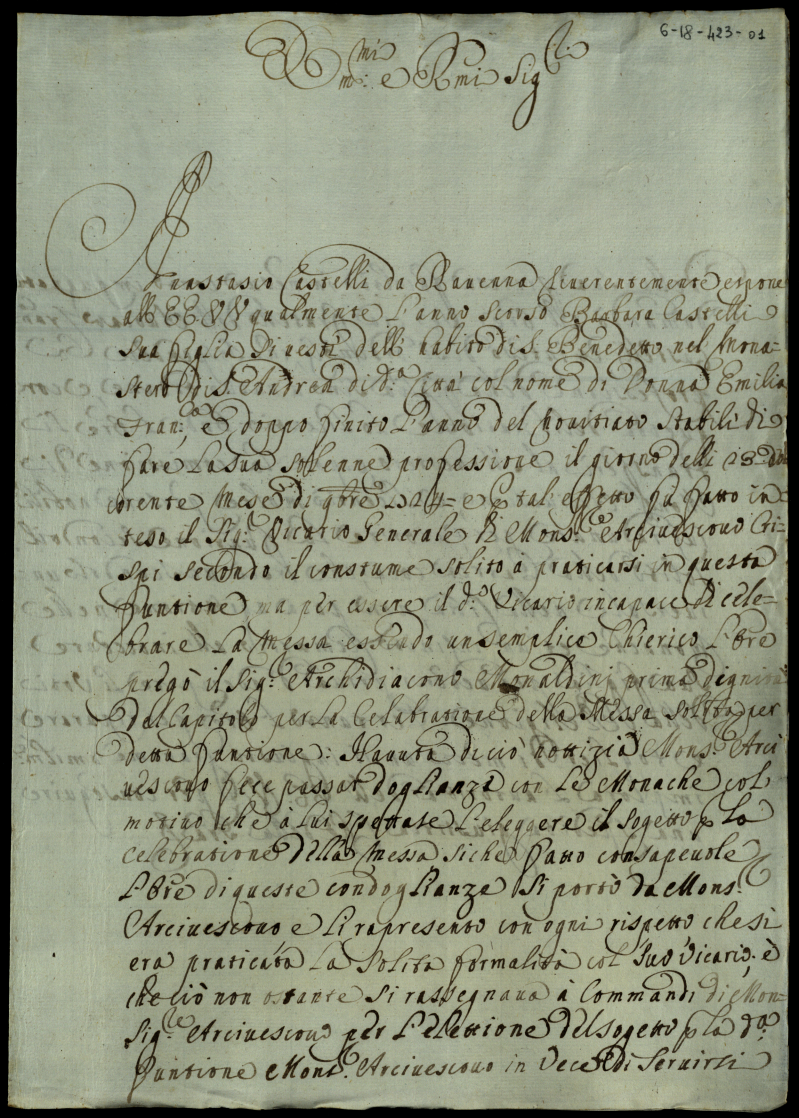 6-18-423-01
E.mi e R.mi Sig.ri
Anastasio Castelli da Rauenna riuerentemente espone
all EE VV qualmente l'anno scorso Barbara Castelli
sua figlia si uestì dell habito di S. Benedetto nel Mona=
stero di S. Andrea di d.a Città col nome di Donna Emilia
Fran.ca e doppo finito l'anno del Nouitiato stabilì di
fare la sua solenne professione il giorno delli 23 del
corente Mese di 9bre 1724= e p tal effetto fu fatto in
teso il Sig.r Vicario Generale di Mons.re Arciuescouo Cri=
spi secondo il constume solito à praticarsi in questa
funtione ma per essere il d.o Vicario incapace di cele=
brare la Messa essendo un semplice Chierico l'Ore
pregò il Sig.r Archidiacono Monaldini prima dignità
del Capitolo per la Celebratione della Messa solita per
detta funtione: Hauuta di ciò nottizia Mons.re Arci
uescouo fece passar doglianza con le Monache col
motiuo che à lui spettase l'eleggere il sogetto p la
celebratione della Messa siche fatto consapeuole
l'Ore di queste condoglianze si portò da Mons.re
Arciuescouo e li rapresentò con ogni rispetto che si
era praticata la solita formalità col suo Vicario. è
che ciò non ostante si rassegnaua à Commandi di Mon=
Sig.re Arciuescouo per l'elettione del sogetto p la d.a
funtione Mons.re Arciuescouo in vece di seruirsi